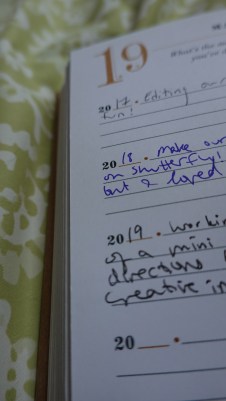 19
What's the m
you've d
2017. Editing our
fun!
2018. Make our
on Shutterfly!
but I loved
2019. workin
of a mini
directions
creative in
20__.